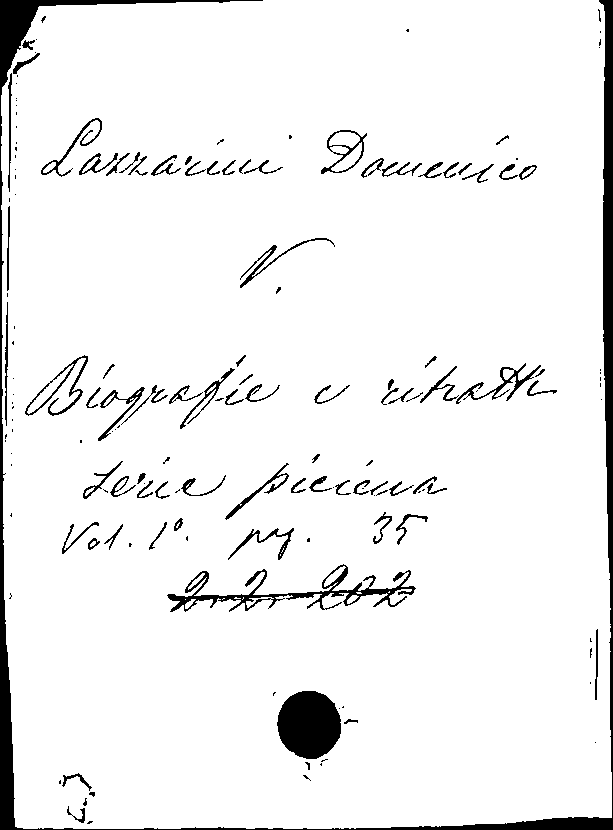 Lazzarini Domenico
V.
Biografie e ritratti
serie picena
Vol. 1º. pag. 35
2. 2. 202